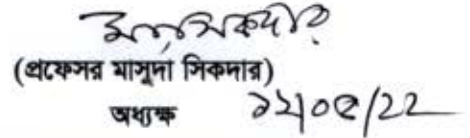 (প্রফেসর মাসুদা সিকদার)
অধ্যক্ষ ১২/০৫/২২